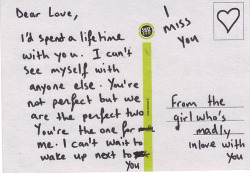 Dear Love,
I'd spent a lifetime
with you. I can't
see myself with
anyone else. You're
not perfect but we
are the perfect two
You're the one for
me. I can't wait to
wake up next to
you
I
miss
you
From the
girl who's
madly
inlove with
you